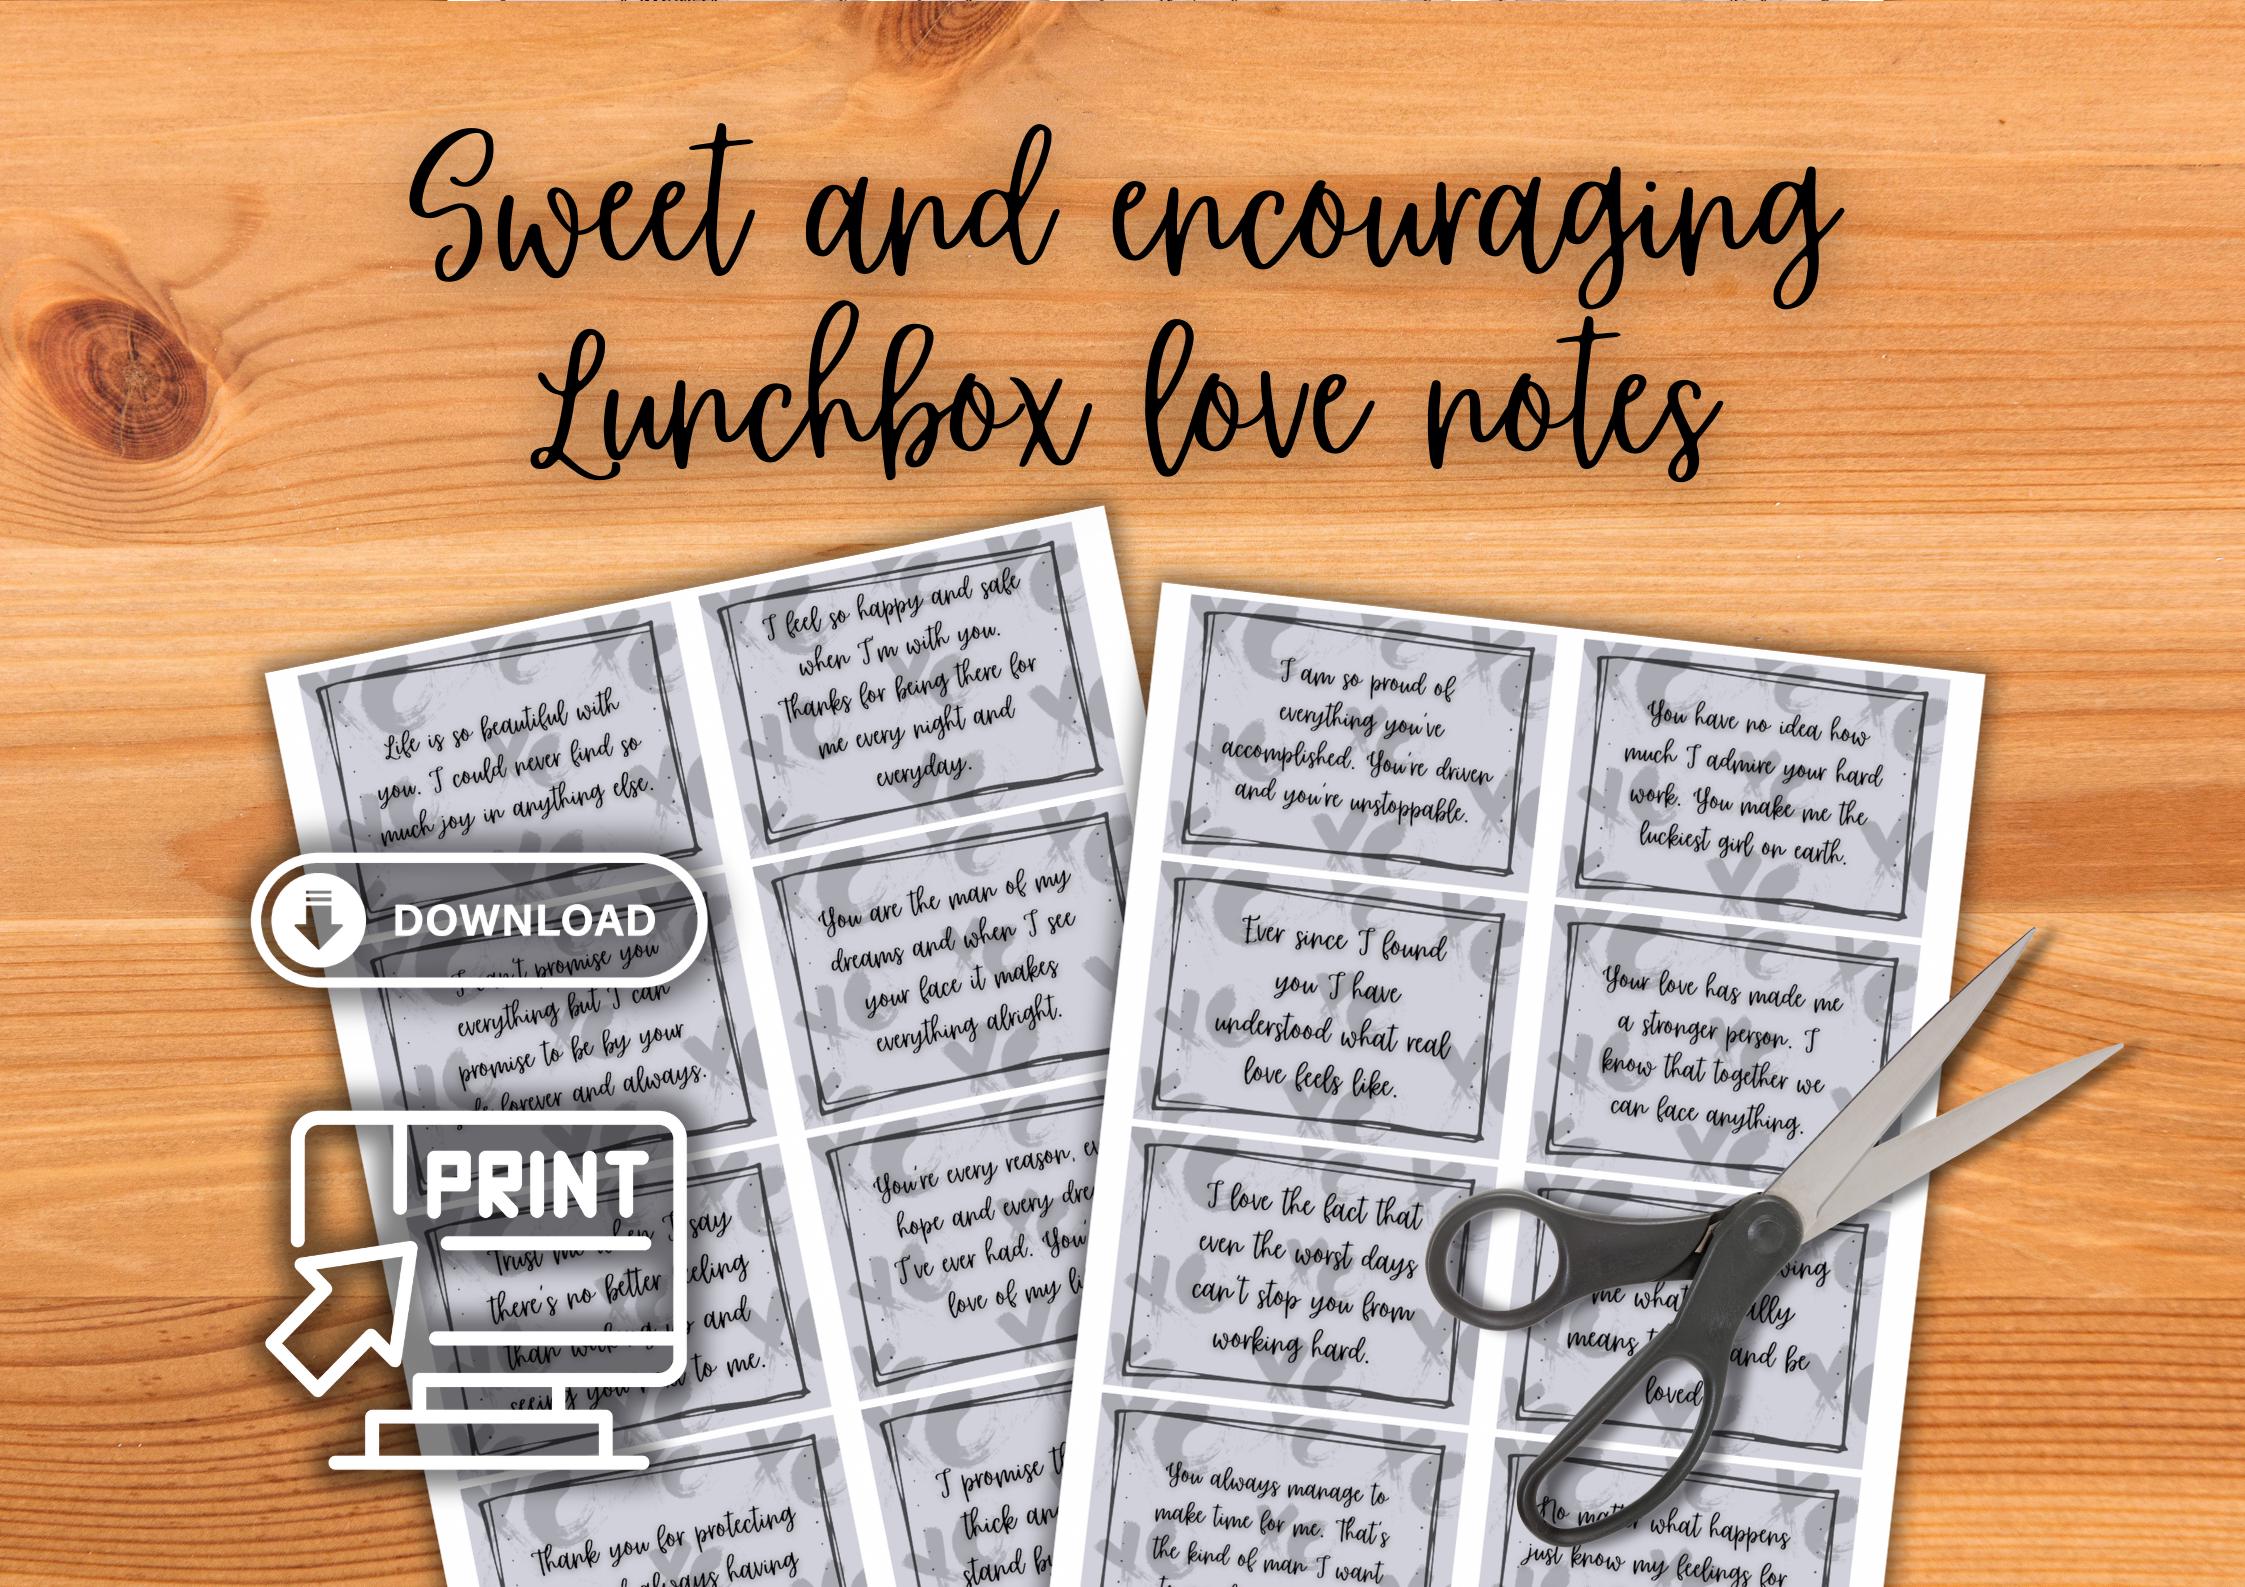 Sweet and encouraging
Lunchbox love notes
Life is so beautiful with
you. I could never find so
much joy in anything else.
I feel so happy and safe
when I'm with you.
Thanks for being there for
me every night and
everyday.
DOWNLOAD
I can't promise you
everything but I can
promise to be by your
forever and always.
You are the man of my
dreams and when I see
your face it makes
everything alright.
PRINT
Trust me when I say
there's no better feeling
than waking up and
seeing you next to me.
You're every reason, ev
hope and every dre
I've ever had. You'
love of my li
Thank you for protecting
always having
I promise th
thick an
stand b
I am so proud of
everything you've
accomplished. You're driven
and you're unstoppable.
You have no idea how
much I admire your hard
work. You make me the
luckiest girl on earth.
Ever since I found
you I have
understood what real
love feels like.
Your love has made me
a stronger person. I
know that together we
can face anything.
I love the fact that
even the worst days
can't stop you from
working hard.
me what
means and be
loved
You always manage to
make time for me. That's
the kind of man I want
No matter what happens
just know my feelings for